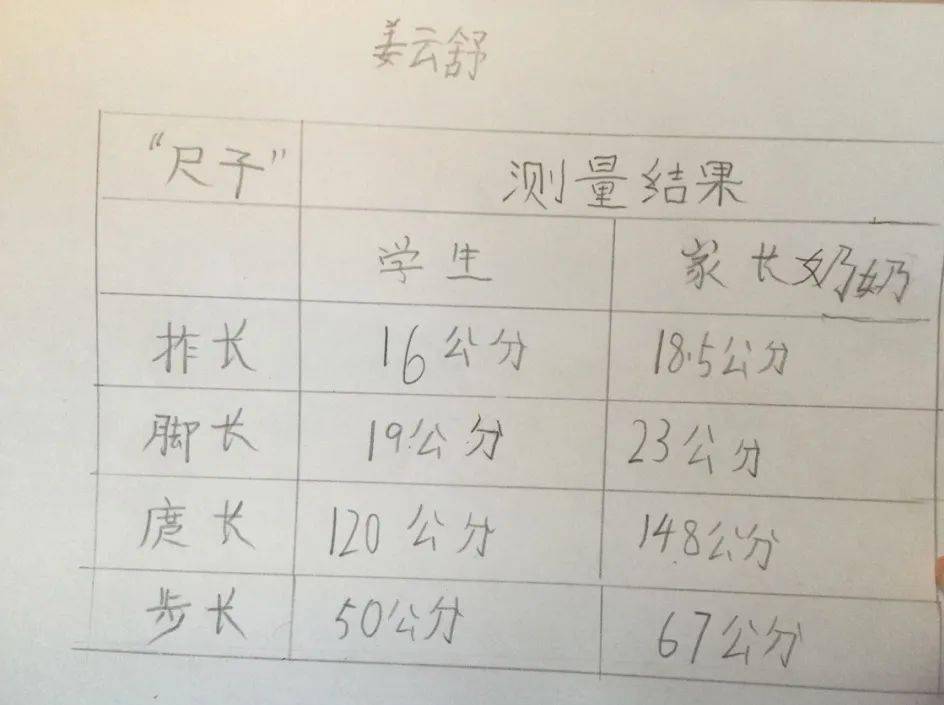 姜云舒
“尺子” 测量结果
学生 家长奶奶
拃长 16公分 18.5公分
脚长 19公分 23公分
庹长 120公分 148公分
步长 50公分 67公分